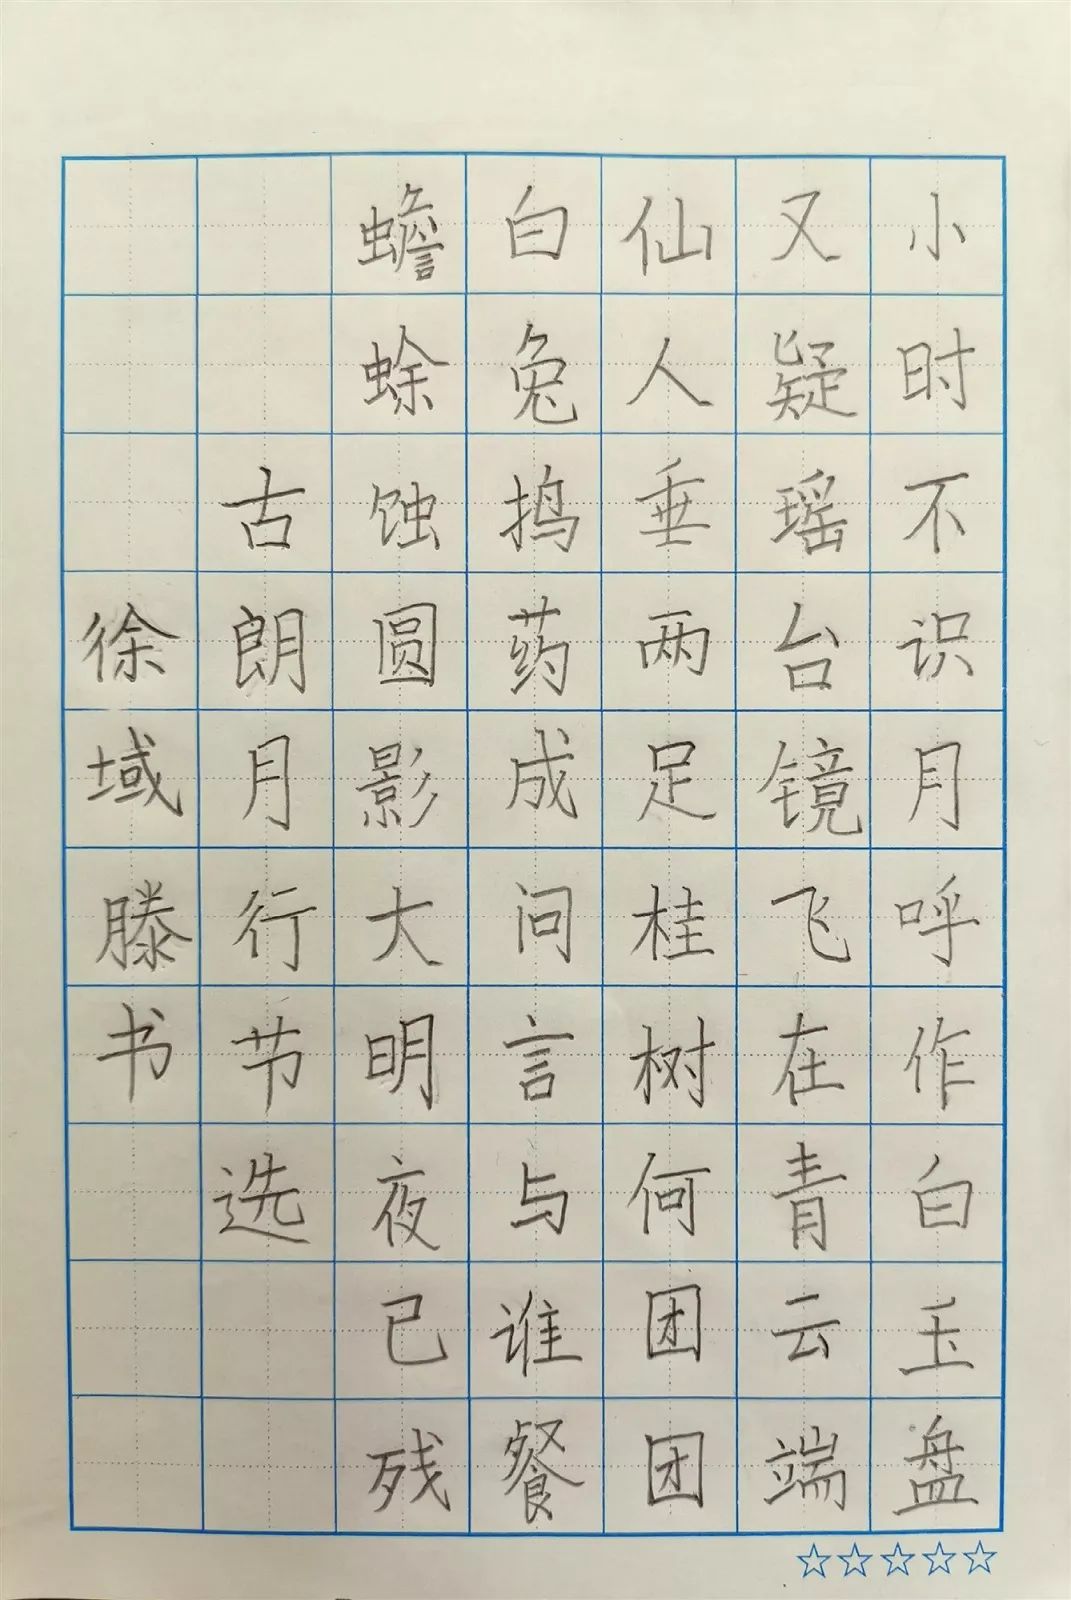 小时不识月呼作白玉盘
又疑瑶台镜飞在青云端
仙人垂两足桂树何团团
白兔捣药成问言与谁餐
蟾蜍蚀圆影大明夜已残
古朗月行节选
徐域滕书